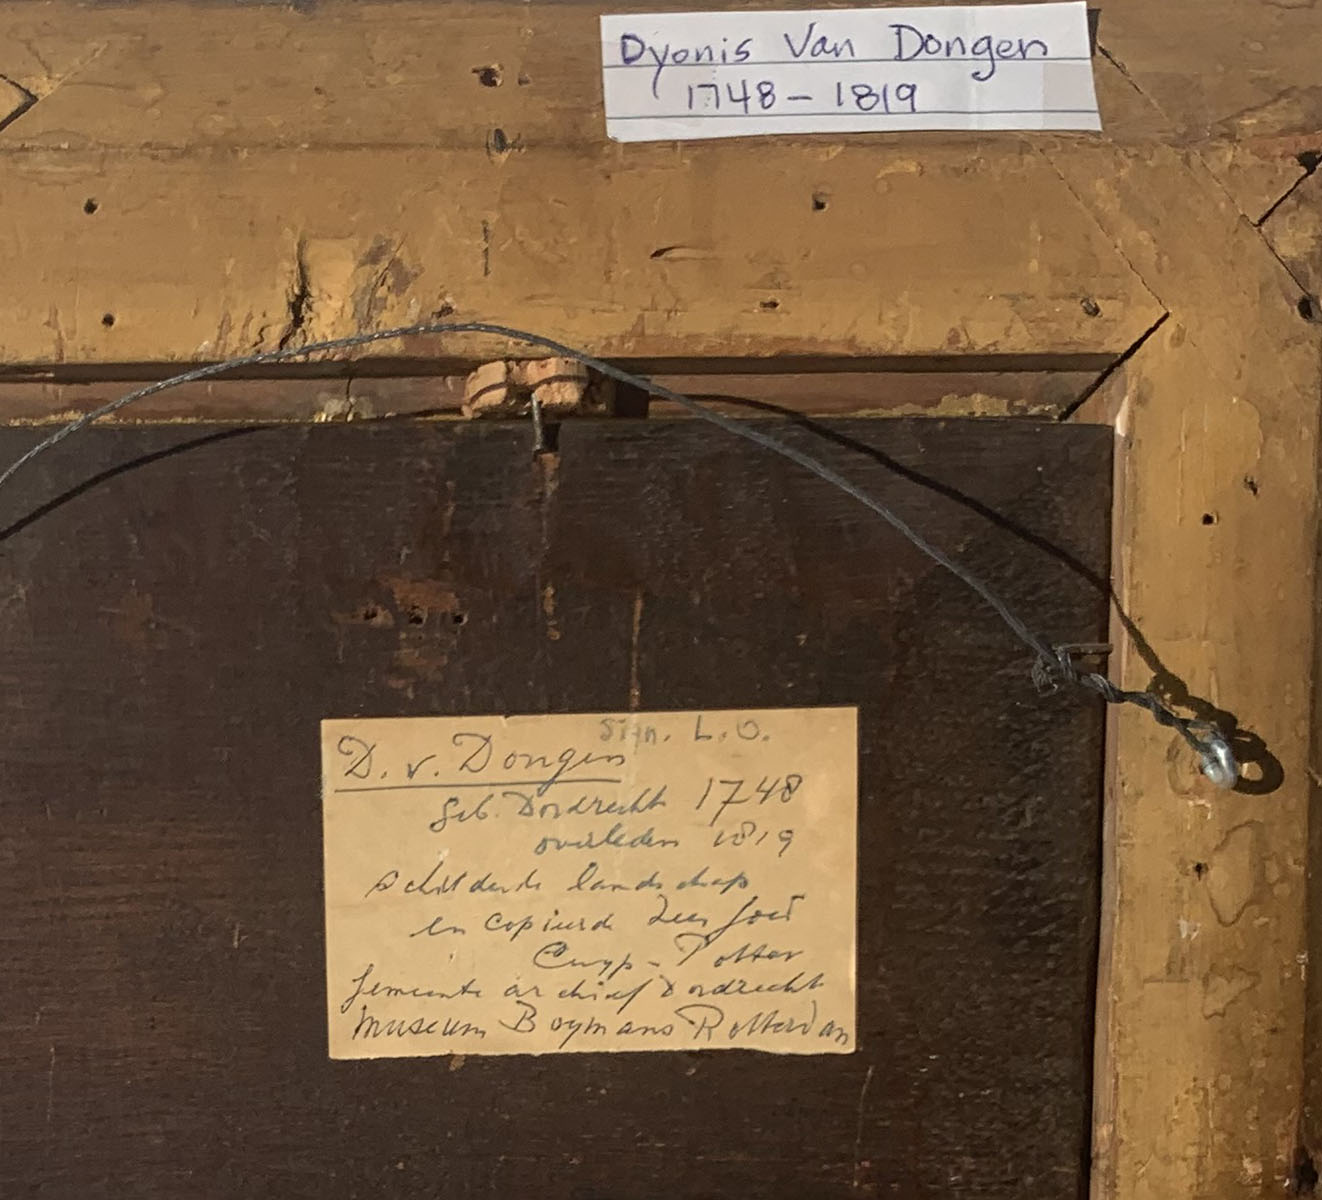 Dyonis Van Dongen
1748 - 1819
Sign. L.O.
D. v. Dongen
geb. Dordrecht 1748
overleden 1819
schilderde landschap
en copieerde zeer goed
Cuyp - Potter
gemeente archief Dordrecht
Museum Boymans Rotterdam